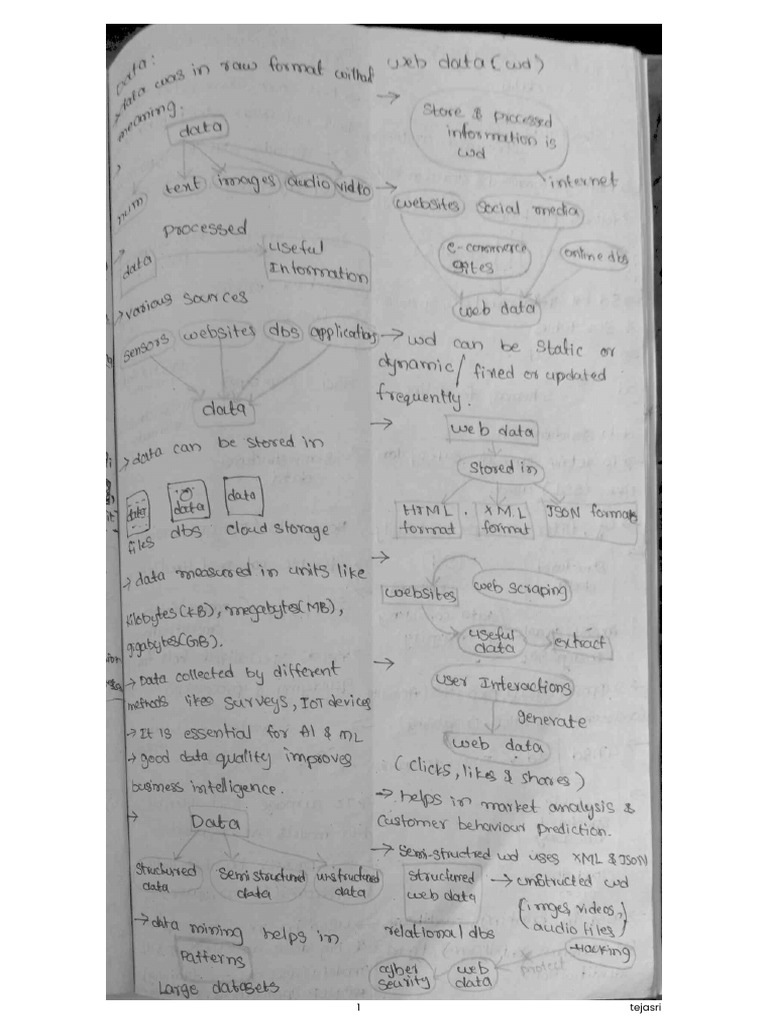 Data:
→ data was in raw format without
meaning.
data
num text images audio video
processed
data useful
Information
→ various sources
sensors websites dbs applications
data
→ data can be stored in
data data data
files dbs cloud storage
→ data measured in units like
kilobytes(KB), megabytes(MB),
gigabytes(GB).
→ Data collected by different
methods likes surveys, IoT devices
→ It is essential for AI & ML
→ good data quality improves
business intelligence.
→ Data
structurred semi structured unstructured
data data data
→ data mining helps in
Patterns
Large datasets
web data (wd)
→ Store & processed
information is
wd
internet
→ websites social media
e-commerce online dbs
sites
web data
→ wd can be static or
dynamic/ fixed or updated
frequently.
→ web data
Stored in
HTML XML JSON formats
format format
→ websites web scraping
useful extract
data
→ user Interactions
generate
web data
(clicks, likes & shares)
→ helps in market analysis &
customer behaviour prediction.
→ semi-structred wd uses XML & JSON
structured → unstructed wd
web data (imges, videos,
audio files)
relational dbs
Hacking
cyber web protect
seurity data
1 tejasri